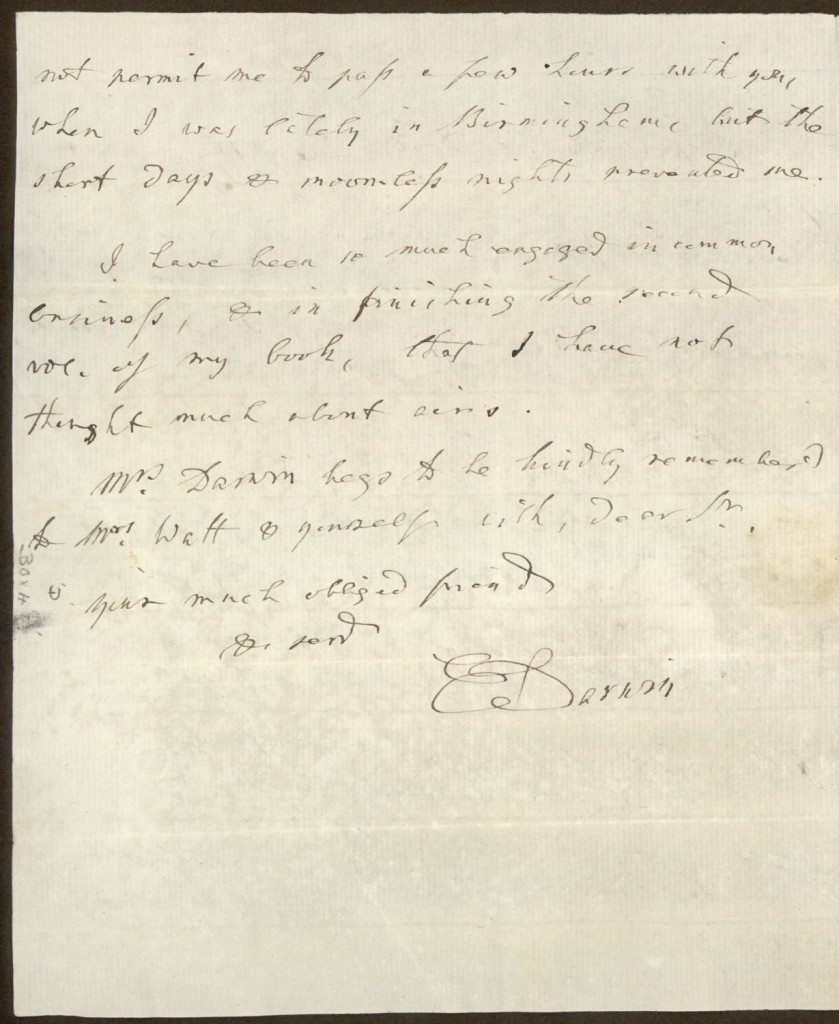 not permit me to pass a few hours with you,
when I was lately in Birmingham, but the
short days & moonless nights prevented me.
I have been so much engaged in common
business, & in finishing the second
vol. of my book, that I have not
thought much about airs.
Mrs. Darwin begs to be kindly remember'd
to Mrs. Watt & yourself with, dear Sr.
your much obliged friend
& serv
E Darwin
Box 4